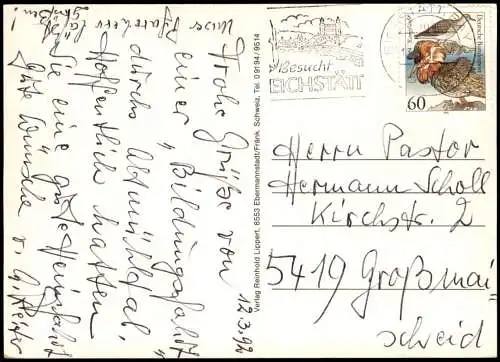 Unser Pfarrherr läßt
grüßen!
12.3.92
Frohe Grüße von
einer "Bildungsfahrt"
durchs Altmühltal.
Hoffentlich hatten
Sie eine gute Heimfahrt
Gute Wünsche v.
Verlag Reinhold Lippert, 8553 Ebermannstadt/Fränk. Schweiz, Tel. 09194/9514
Besucht
EICHSTÄTT
Deutsche Bundespost
60
Herrn Pastor
Hermann Scholl
Kirchstr. 2
5419 Großmai=
scheid